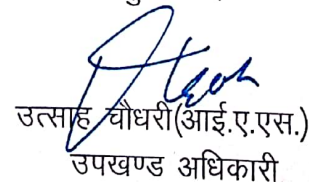 उत्साह चौधरी(आई.ए.एस.)
उपखण्ड अधिकारी